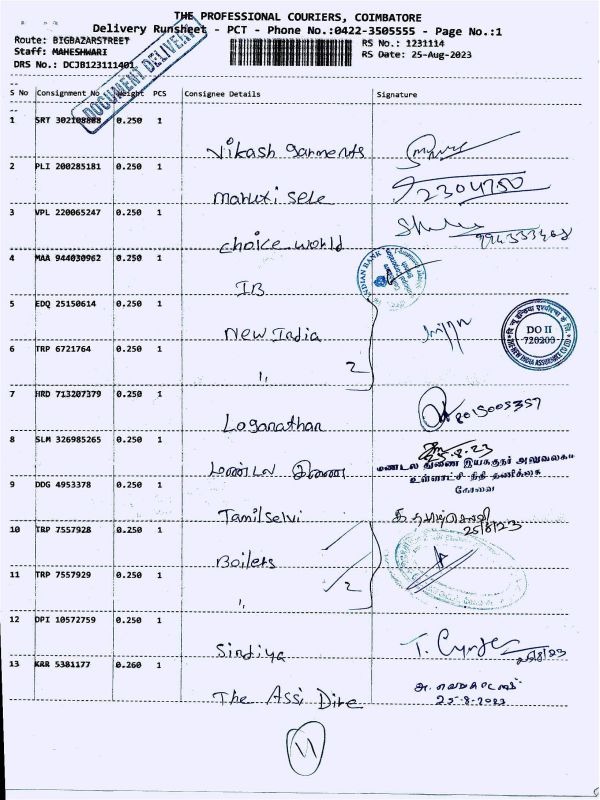 THE PROFESSIONAL COURIERS, COIMBATORE
Delivery Runsheet - PCT - Phone No.:0422-3505555 - Page No.:1
Route: BIGBAZARSTREET
RS No.: 1231114
Staff: MAHESHWARI
RS Date: 25-Aug-2023
DRS No.: DCJB123111401
DOCUMENT DELIVERY
S No Consignment No Weight PCS Consignee Details Signature
1 SRT 302108808 0.250 1
Vikash Garments
2 PLI 200285181 0.250 1
Maruti Sele
3 VPL 220065247 0.250 1
Choice world
4 MAA 944030962 0.250 1
IB
INDIAN BANK
5 EDQ 25150614 0.250 1
New India
DO II
720200
THE NEW INDIA ASSURANCE CO
6 TRP 6721764 0.250 1
2
7 HRD 713207379 0.250 1
Loganathan
8015005357
8 SLM 326985265 0.250 1
மண்டல இணை
25-8-23
மண்டல துணை இயக்குநர் அலுவலகம்
உள்ளாட்சி நிதி தணிக்கை
கோவை
9 DDG 4953378 0.250 1
Tamilselvi
க. தமிழ்செல்வி
25/8/23
10 TRP 7557928 0.250 1
Boilers
11 TRP 7557929 0.250 1
2
12 DPI 10572759 0.250 1
Sindiya
25/8/23
13 KRR 5381177 0.260 1
The Assi Dire
25-8-2023
11